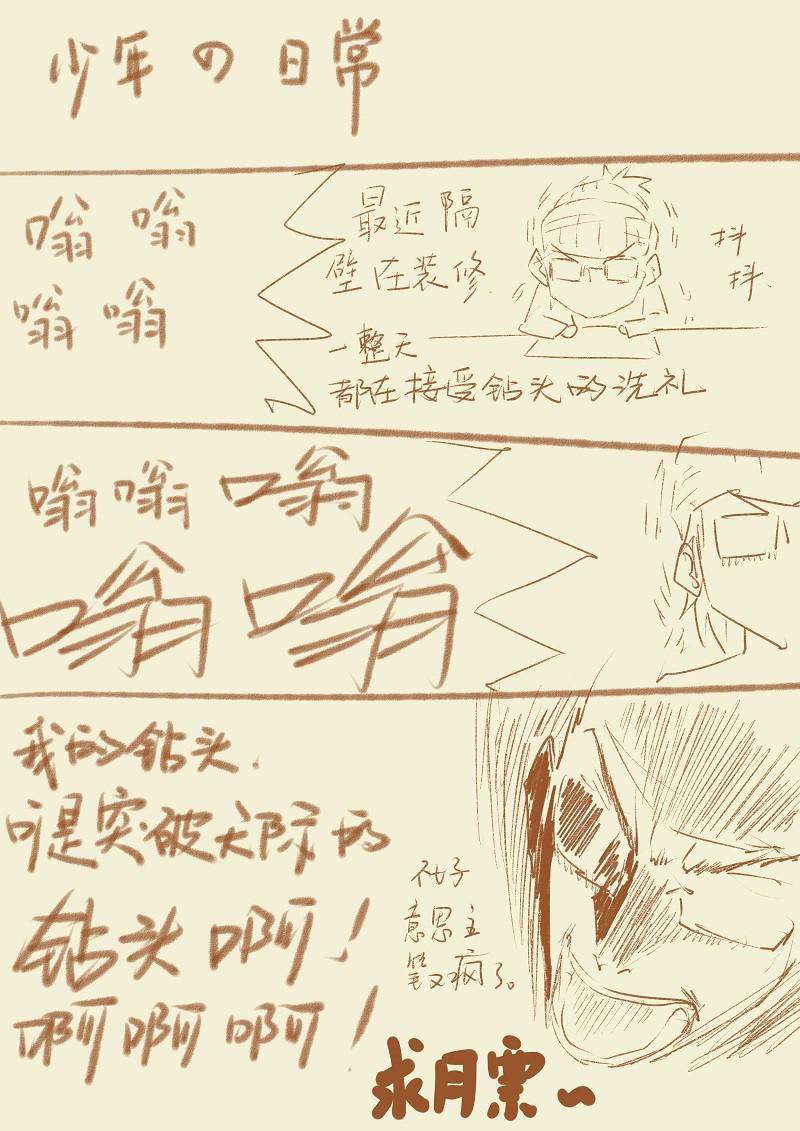 少年の日常
嗡 嗡
嗡 嗡
最近隔
壁在装修.
一整天
都在接受钻头的洗礼
抖
抖.
嗡 嗡 嗡
嗡 嗡
我的钻头.
可是突破天际的
钻头啊!
啊啊啊!
不好
意思主
笔又疯了。
求月票~